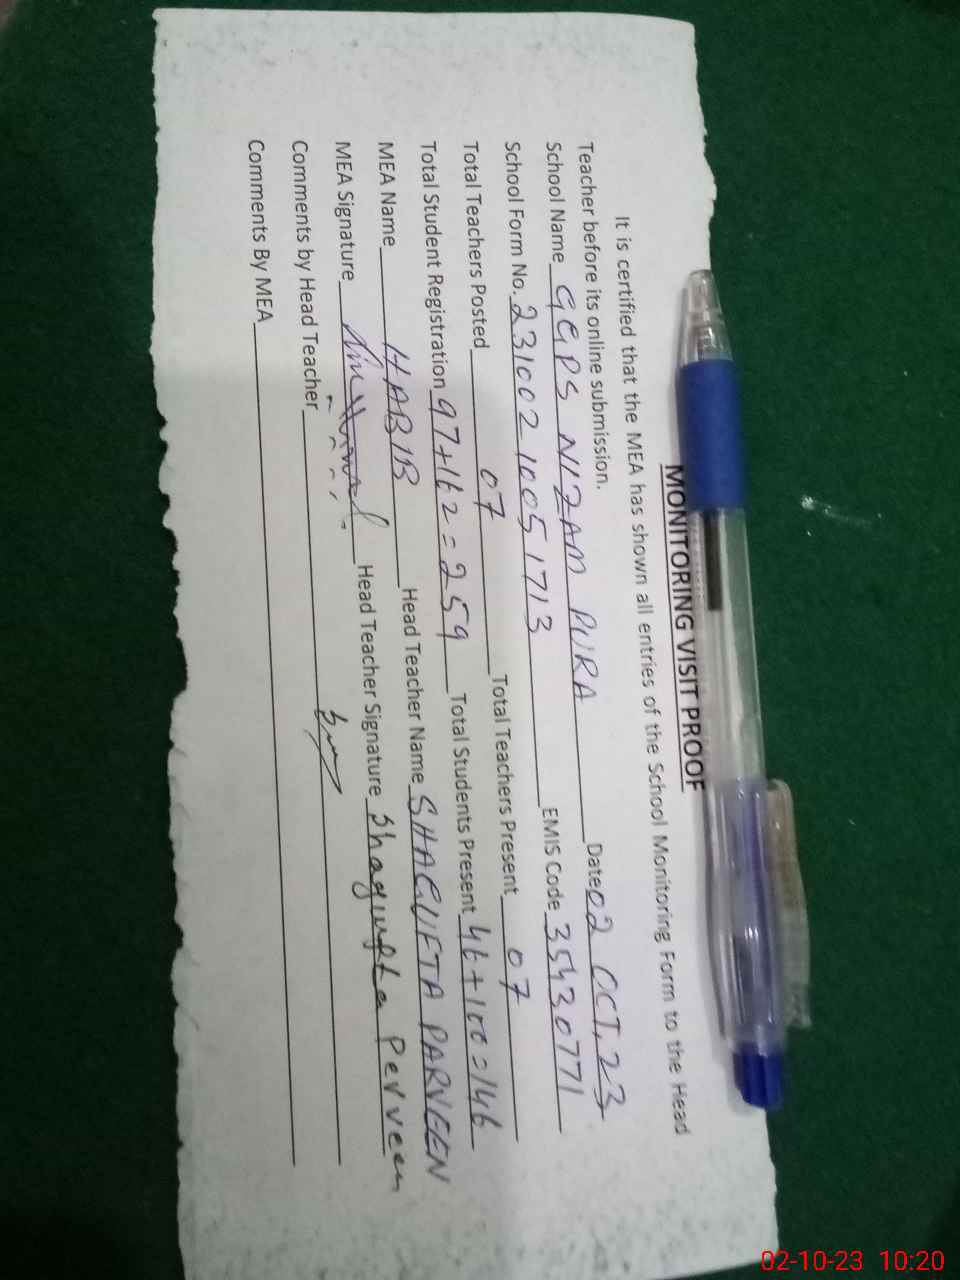 MONITORING VISIT PROOF
It is certified that the MEA has shown all entries of the School Monitoring Form to the Head
Teacher before its online submission.
School Name GGPS NIZAM PURA Date 02 OCT, 23
School Form No. 231002 1005 1713 EMIS Code 35430771
Total Teachers Posted 07 Total Teachers Present 07
Total Student Registration 97+162=259 Total Students Present 46+100=146
MEA Name HABIB Head Teacher Name SHAGUFTA PARVEEN
MEA Signature Head Teacher Signature Shagufta Perveen
Comments by Head Teacher
Comments By MEA
02-10-23 10:20